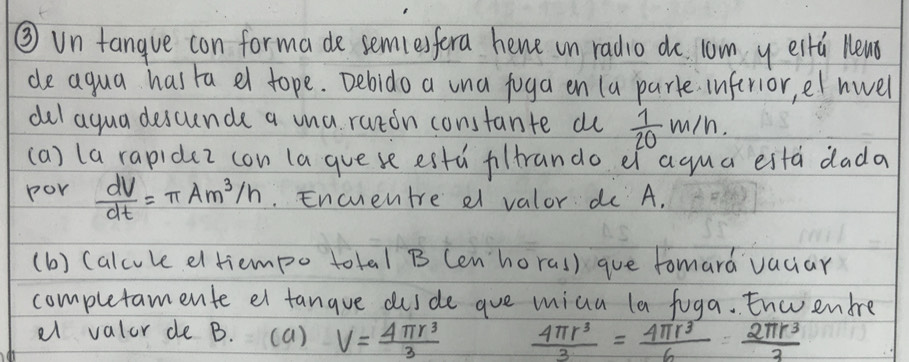 ③ Un tanque con forma de semiesfera tiene un radio de 10m y está lleno
de agua hasta el tope. Debido a una fuga en la parte inferior, el nivel
del agua desciende a una razón constante de 1/20 m/h.
(a) La rapidez con la que se está filtrando el agua está dada
por dV/dt = π A m³/h. Encuentre el valor de A.
(b) Calcule el tiempo total B (en horas) que tomará vaciar
completamente el tanque desde que inicia la fuga. Encuentre
el valor de B. (a) V = 4πr³/3 4πr³/3 = 4πr³/6 = 2πr³/3